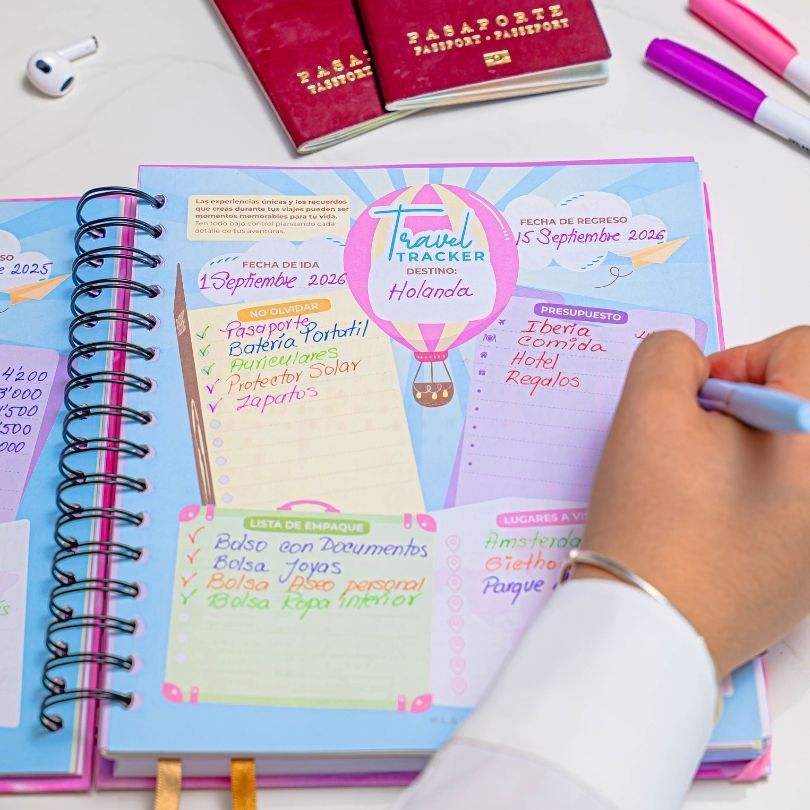 PASAPORTE
PASSPORT - PASSEPORT
PASA
PASSPORT
2025
4'200
'000
'500
500
000
Las experiencias únicas y los recuerdos
que creas durante tus viajes pueden ser
momentos memorables para tu vida.
Ten todo bajo control planeando cada
detalle de tus aventuras.
Travel
TRACKER
DESTINO:
Holanda
FECHA DE IDA
1 Septiembre 2026
FECHA DE REGRESO
15 Septiembre 2026
NO OLVIDAR
Pasaporte
Batería Portatil
Auriculares
Protector Solar
Zapatos
PRESUPUESTO
Iberia
Comida
Hotel
Regalos
LISTA DE EMPAQUE
Bolso con Documentos
Bolsa Joyas
Bolsa Aseo personal
Bolsa Ropa interior
LUGARES A VIS
Amsterda
Gietho
Parque